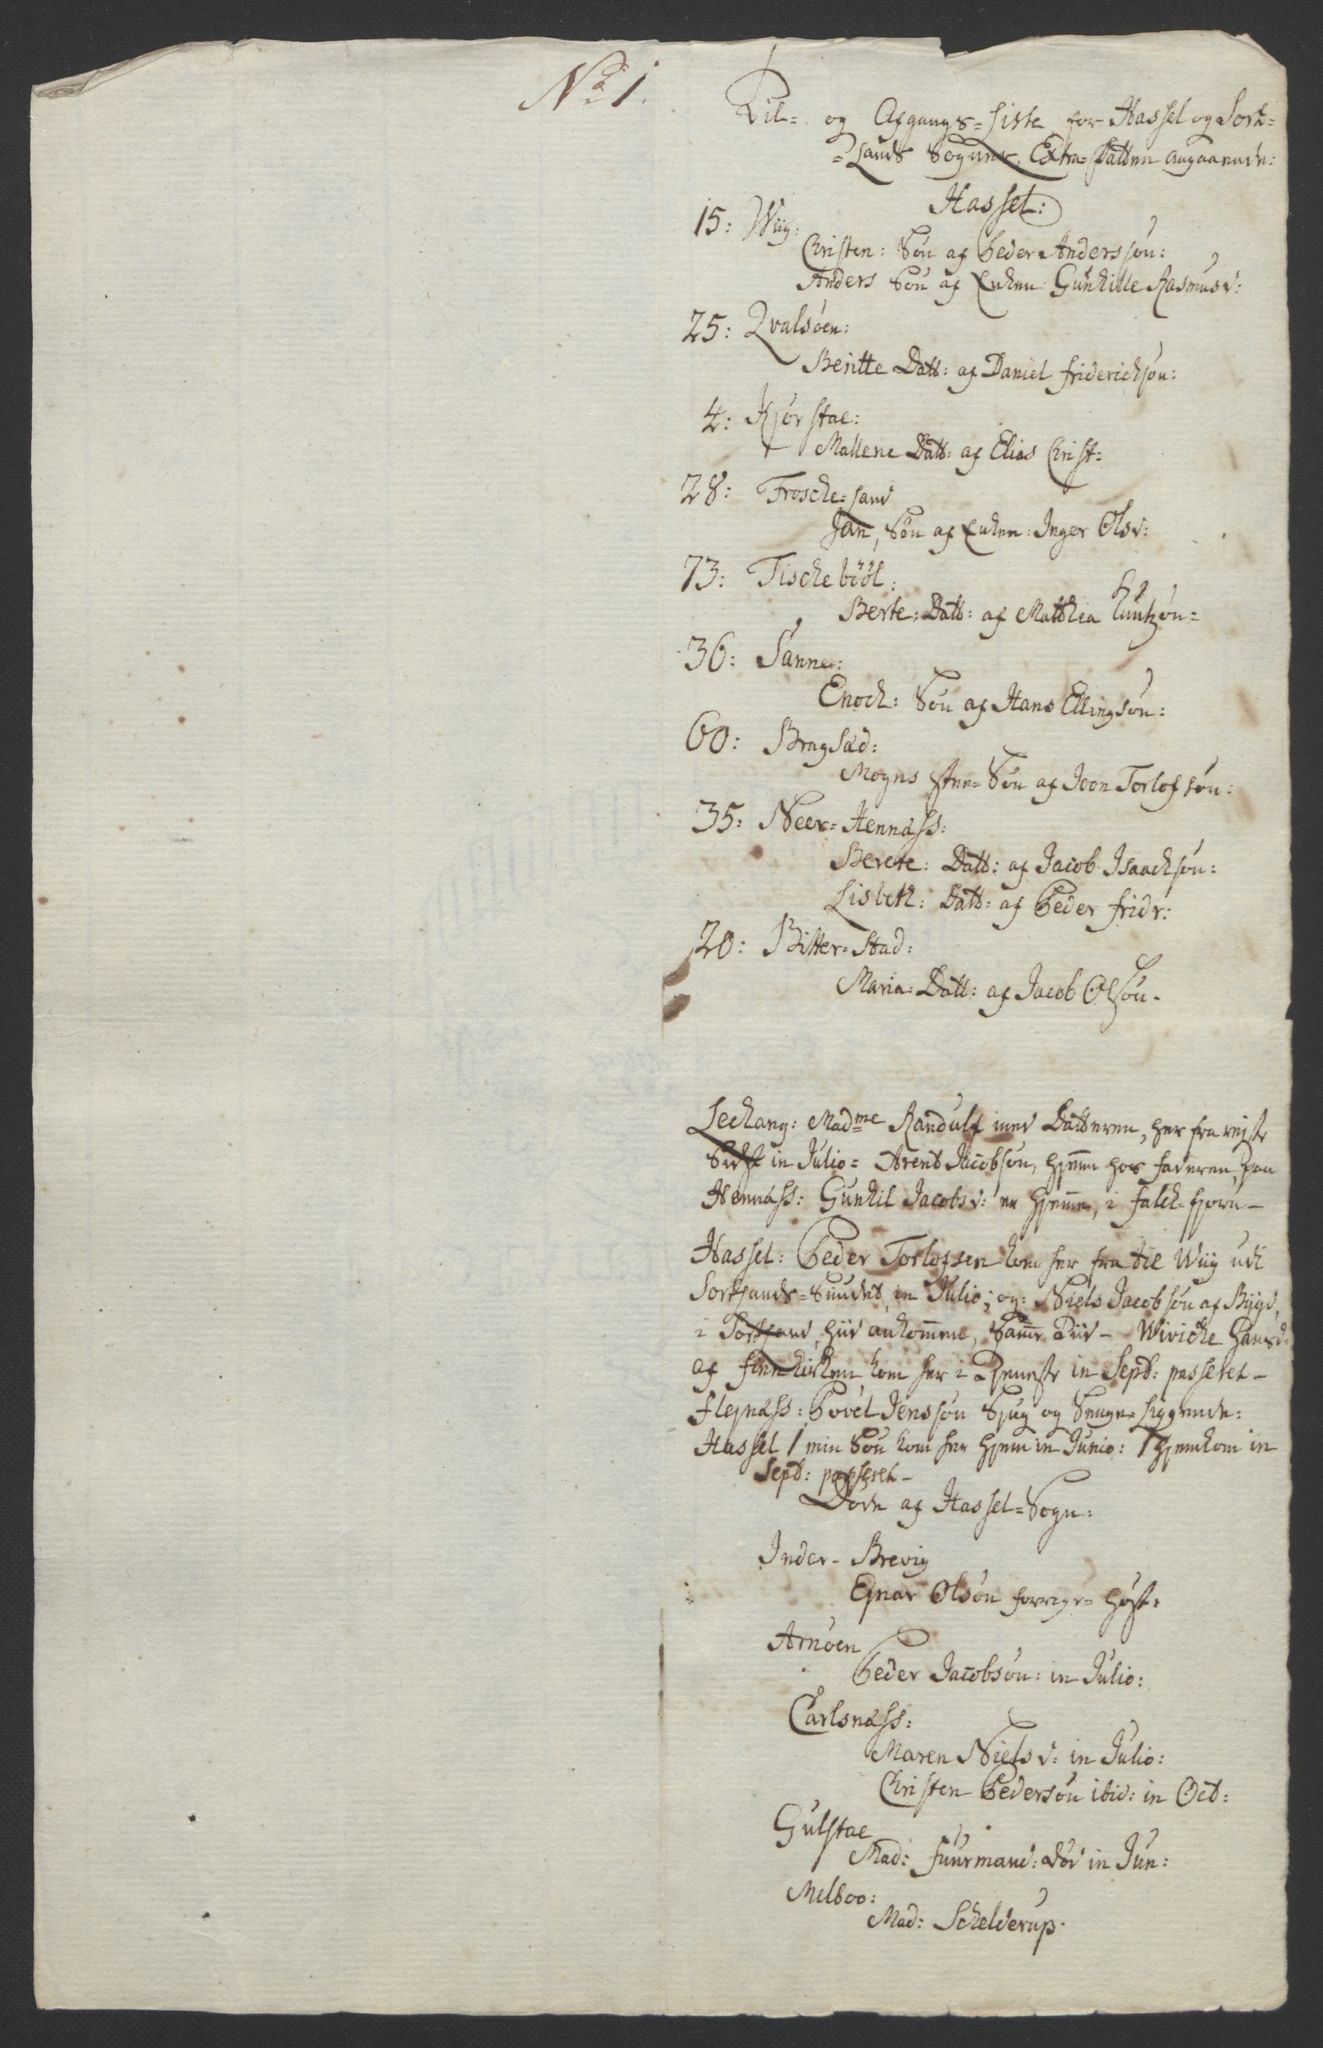 No 1.
Til- og Afgangs-Liste for Hassel og Sort-
-lands Sogner, Extra-Skatten angaaende:
Hassel:
15: Wiig:
Christen: Søn af Peder Anderssøn:
Anders Søn af Enken Gunhille Rasmusd:
25: Qvalsøen:
Beritte Datt: af Daniel Friderichsøn:
4: Kjørstae:
Mallene Datt: af Elias Christ-
28: Frosche-land
Jan, Søn af Enken: Inger Olsd:
73: Tischebööl:
Berte: Datt: af Matthia Knutzøn-
36: Sanne:
Enoch: Søn af Hans Ellingsøn:
60: Bragsæd:
Mogns Søn af Joen Torlofsøn:
35: Neer-Hennæss:
Berete: Datt: af Jacob Isaachsøn:
Lisbeth: Datt: af Peder Fridr:
20: Bitter-Stad:
Maria: Datt: af Jacob Olsøn-
Lechang: Madme Randulf med Datteren, her fra rejste
Sidst in Julio- Arent Jacobsøn, hjemme hos Faderen, paa
Hennæss: Gunhil Jacobsd: er hjemme, i Falck-fjorn-
Hassel: Peder Torlofsen kom her fra til Wiig udi
Sortlands-Sundet, in Julio; og: Niels Jacobsøn af Bygd,
i Sortland, hid ankommen, Samme Tiid- Wiviche Hansd:
af kom her i Tjeneste in Septb: passeret-
Flejnæss: Povel Jenssøn Sjug og Senge-liggende:
Hassel 1 min Søn kom her hjem in Junio: 1 hjemkom in
Septb: passeret-
Døde af Hassel-Sogn:
Inder- Brevig
Ejnar Olsøn forrige- Høst:
Arnöen
Peder Jacobsøn: in Julio:
Carlsnæss:
Maren Nielsd: in Julio:
Christen Pedersøn ibid: in Oct:
Gulstae
Mad: Fuurmand: død in Jun:
Melboo:
Mad: Schelderup.